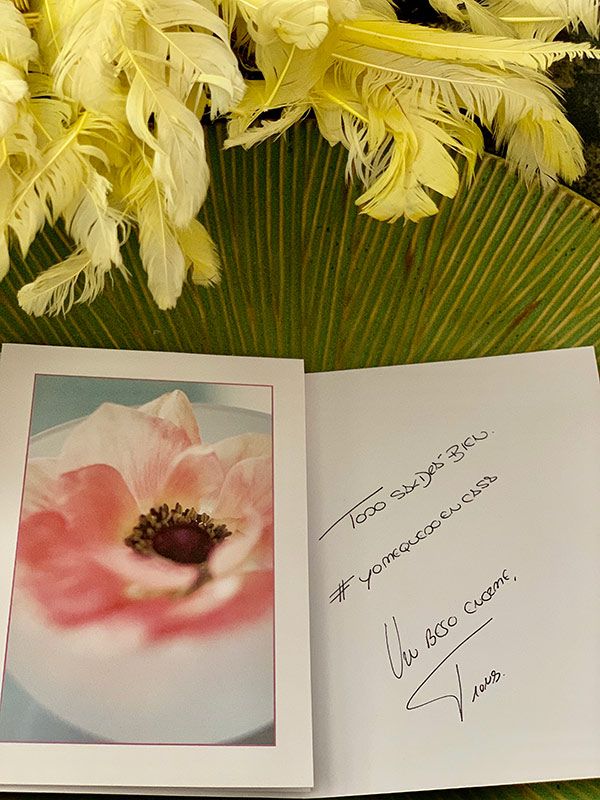 TODO SALDRÁ BIEN.
# YOMEQUEDOENCASA
UN BESO ENORME,